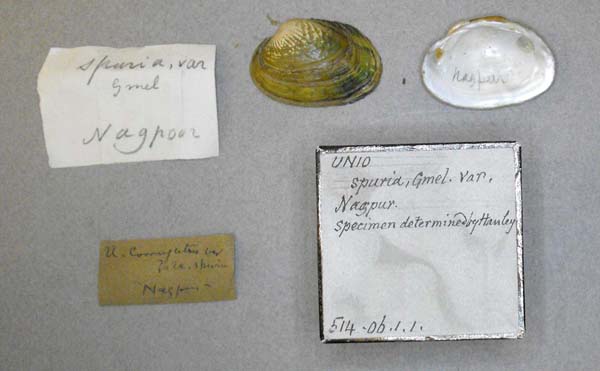 spuria, var
Gmel
Nagpoor
nagpur
UNIO
spuria, Gmel. Var.
Nagpur.
Specimen determined by Hanley
514.ob.1.1.
U. Corrugatus var
spuria
Nagpur